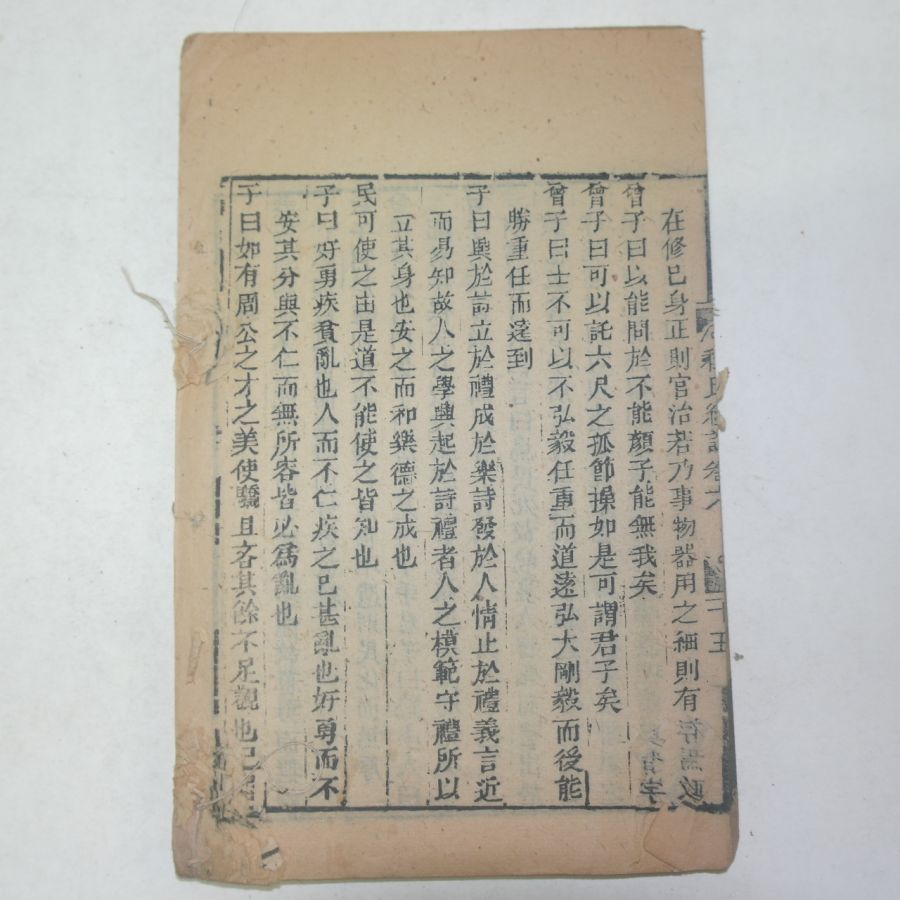 程氏經說卷六 二十五
在修己身正則官治若乃事物器用之細則有
曾子曰以能問於不能顏子能無我矣
曾子曰可以託六尺之孤節操如是可謂君子矣
曾子曰士不可以不弘毅任重而道遠弘大剛毅而後能
勝重任而遠到
子曰興於詩立於禮成於樂詩發於人情止於禮義言近
而易知故人之學興起於詩禮者人之模範守禮所以
立其身也安之而和樂德之成也
民可使之由是道不能使之皆知也
子曰好勇疾貧亂也人而不仁疾之已甚亂也好勇而不
安其分與不仁而無所容皆必為亂也
子曰如有周公之才之美使驕且吝其餘不足觀也已